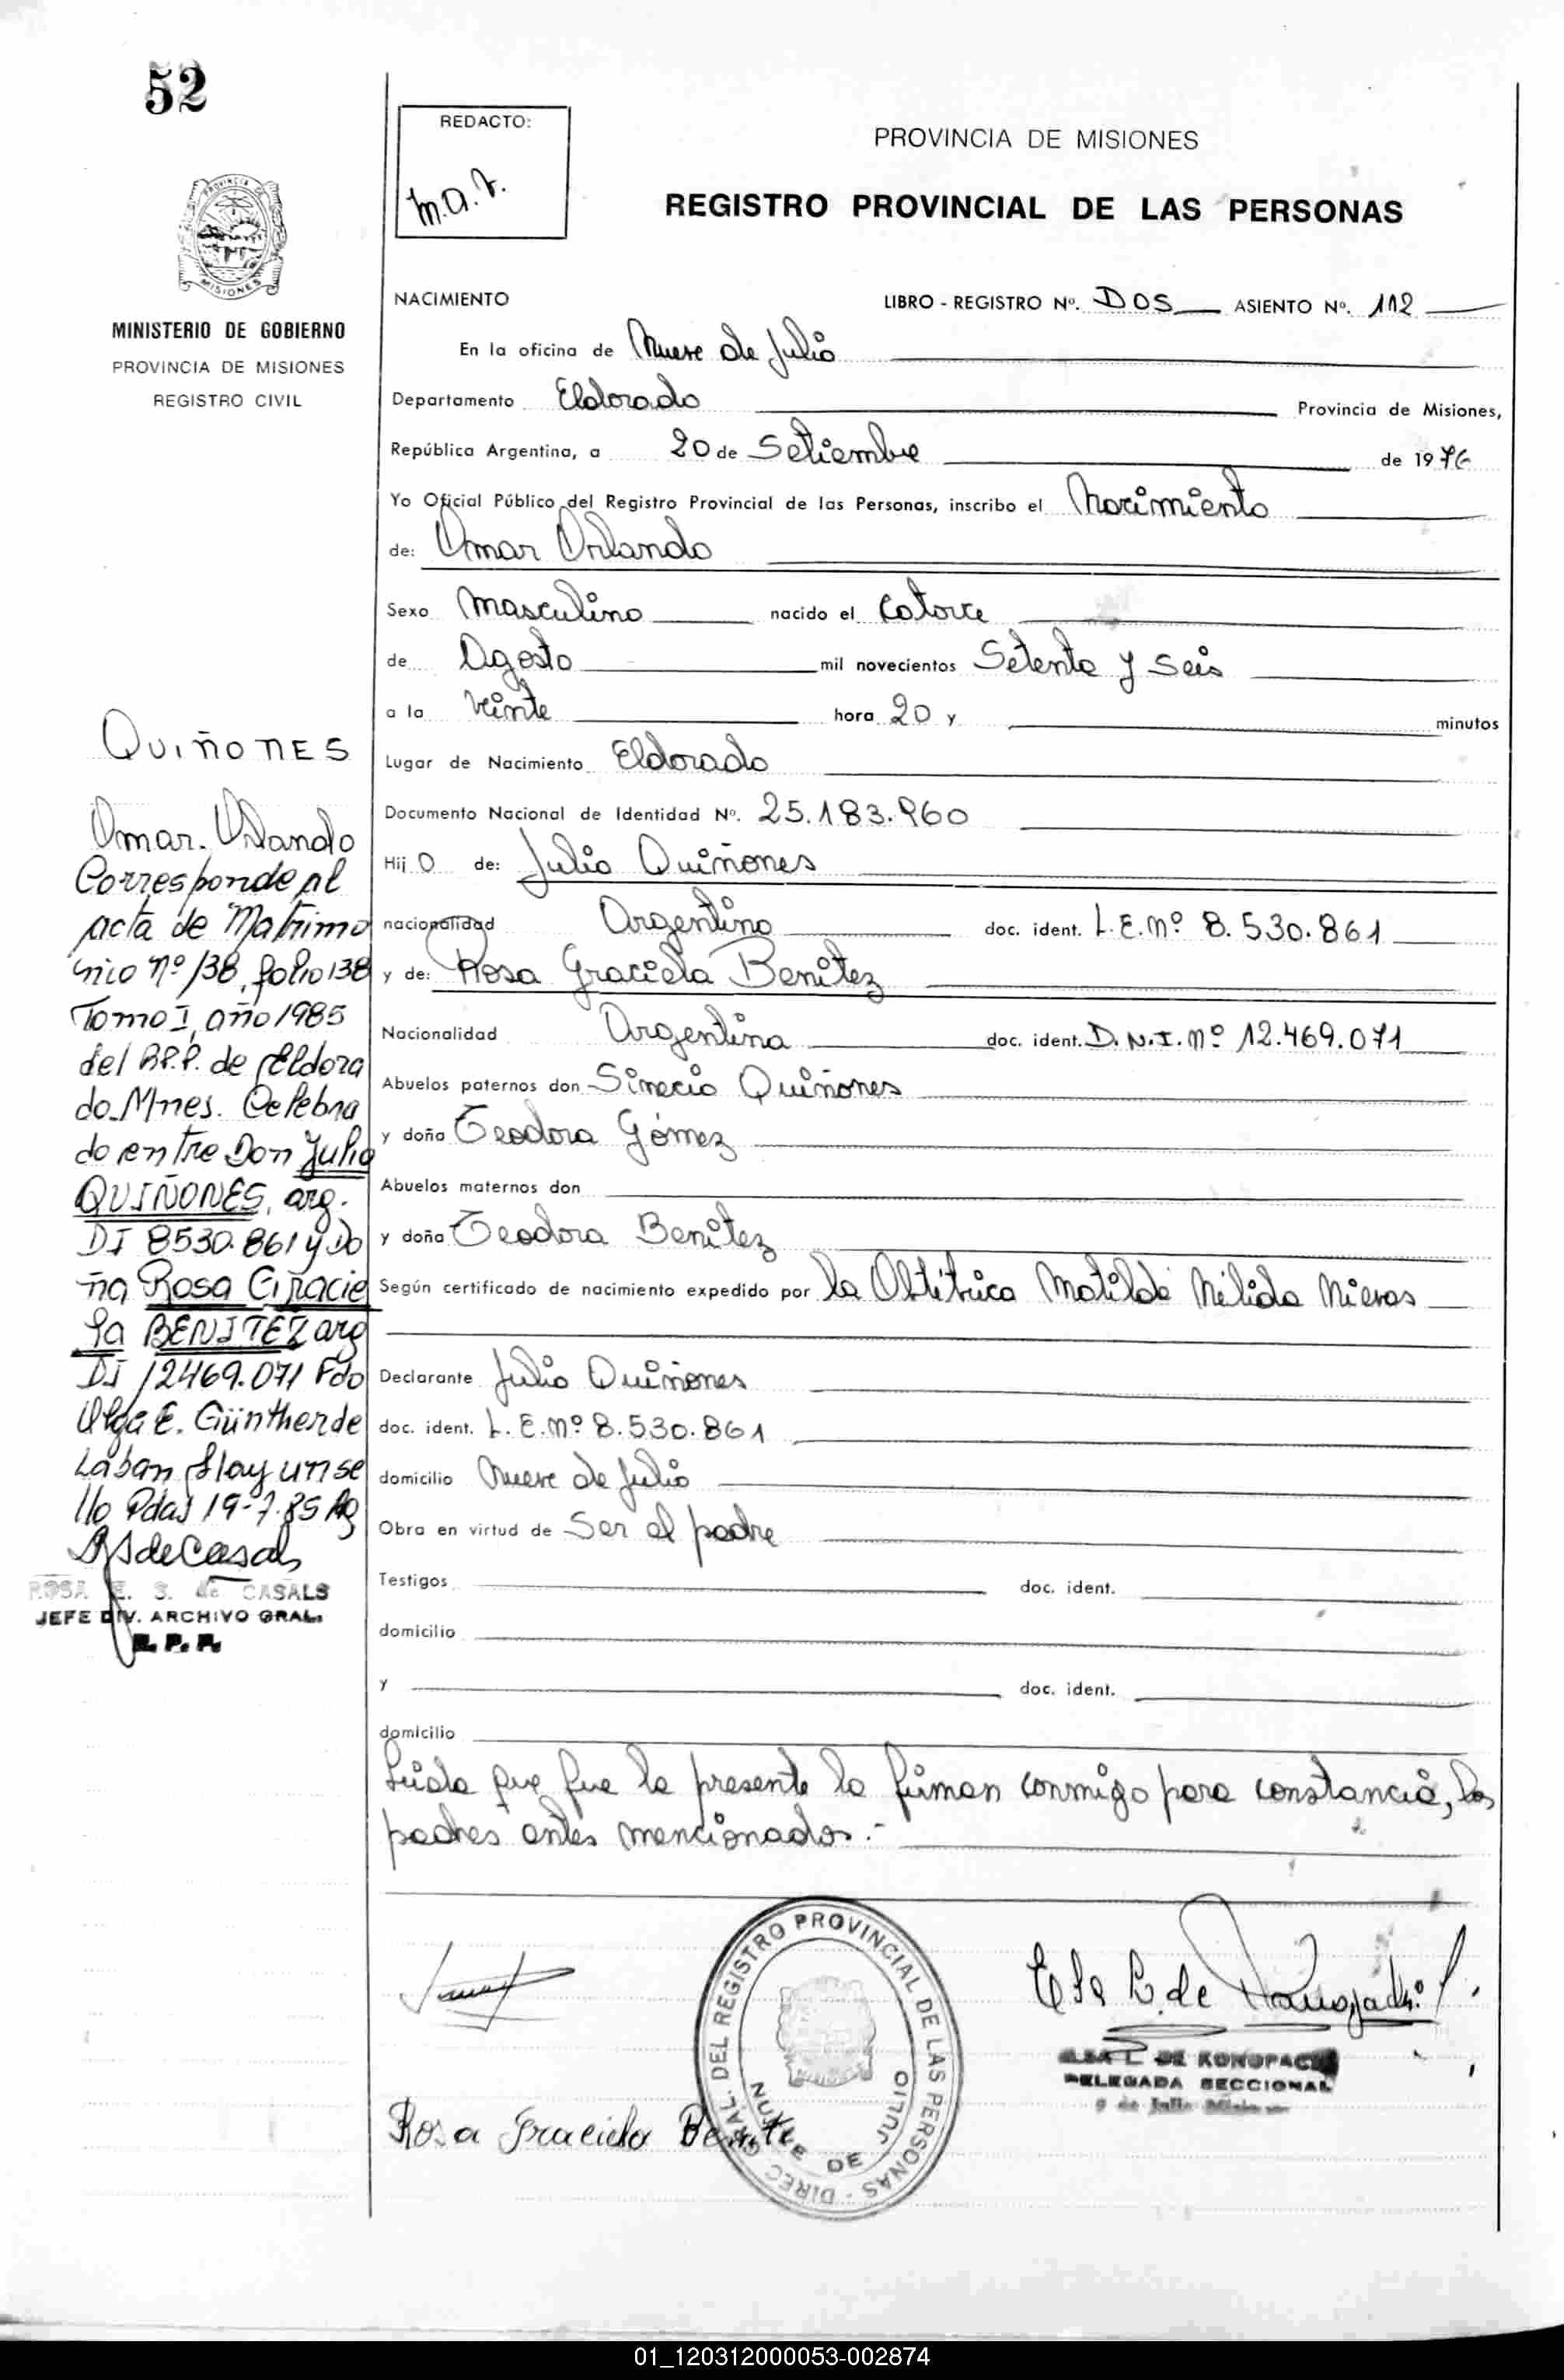 52
REDACTO:
M.A.V.
PROVINCIA DE MISIONES
REGISTRO PROVINCIAL DE LAS PERSONAS
PROVINCIA DE
MISIONES
MINISTERIO DE GOBIERNO
PROVINCIA DE MISIONES
REGISTRO CIVIL
NACIMIENTO LIBRO - REGISTRO Nº. DOS ASIENTO Nº. 112
En la oficina de Nueve de Julio
Departamento Eldorado Provincia de Misiones,
República Argentina, a 20 de Setiembre de 1976
Yo Oficial Público del Registro Provincial de las Personas, inscribo el Nacimiento
de: Omar Orlando
Sexo Masculino nacido el Catorce
de Agosto mil novecientos Setenta y Seis
a la Veinte hora 20 y minutos
Lugar de Nacimiento Eldorado
Documento Nacional de Identidad Nº. 25.183.960
Hijo de: Julio Quiñones
nacionalidad Argentino doc. ident. L.E.Nº 8.530.861
y de: Rosa Graciela Benitez
Nacionalidad Argentina doc. ident. D.N.I.Nº 12.469.071
Abuelos paternos don Simecio Quiñones
y doña Teodora Gómez
Abuelos maternos don
y doña Teodora Benitez
Según certificado de nacimiento expedido por la Obtétrica Matilde Nélida Nieves
Declarante Julio Quiñones
doc. ident. L.E.Nº 8.530.861
domicilio Nueve de Julio
Obra en virtud de Ser el padre
Testigos doc. ident.
domicilio
y doc. ident.
domicilio
Leída que fue la presente la firman conmigo para constancia, los
padres antes mencionados.-
QUIÑONES
Omar Orlando
Corresponde al
acta de Matrimo
nio nº 138, folio 138
Tomo I, año 1985
del R.P.P. de Eldora
do Mnes. Celebra
do entre Don Julio
QUIÑONES, arg.
DI 8530.861 y Do
ña Rosa Gracie
la BENITEZ arg
DI 12469.071 Fdo
Olga E. Günther de
Laban Hay un se
llo Pdas 19-7-85
RSdeCasals
ROSA E. S. de CASALS
JEFE DIV. ARCHIVO GRAL.
R. P. P.
DIREC. GRAL. DEL REGISTRO PROVINCIAL DE LAS PERSONAS
NUEVE DE JULIO
Elsa L. de Konopacki
ELSA L. DE KONOPACKI
DELEGADA SECCIONAL
9 de Julio Misiones
Rosa Graciela Benitez
01_120312000053-002874